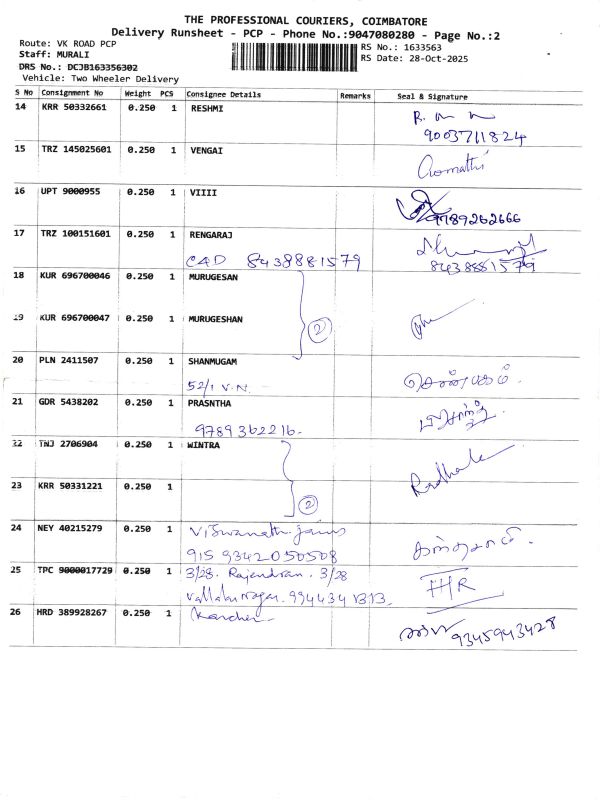 THE PROFESSIONAL COURIERS, COIMBATORE
Delivery Runsheet - PCP - Phone No.:9047080280 - Page No.:2
Route: VK ROAD PCP
RS No.: 1633563
Staff: MURALI
RS Date: 28-Oct-2025
DRS No.: DCJB163356302
Vehicle: Two Wheeler Delivery
S No Consignment No Weight PCS Consignee Details Remarks Seal & Signature
14 KRR 50332661 0.250 1 RESHMI
9003711824
15 TRZ 145025601 0.250 1 VENGAI Gomathi
16 UPT 9000955 0.250 1 VIIII
9789262666
17 TRZ 100151601 0.250 1 RENGARAJ
CAD 8438881579 8438881579
18 KUR 696700046 0.250 1 MURUGESAN
19 KUR 696700047 0.250 1 MURUGESHAN
2
20 PLN 2411507 0.250 1 SHANMUGAM
52/1 V.N. செண்பகம்.
21 GDR 5438202 0.250 1 PRASNTHA
9789362216.
22 TNJ 2706904 0.250 1 WINTRA
23 KRR 50331221 0.250 1
2
24 NEY 40215279 0.250 1 Viswanath Jains
915 9342050508
25 TPC 9000017729 0.250 1 3/28. Rajendran. 3/28
Vallalar Nagar.
26 HRD 389928267 0.250 1
9345943428